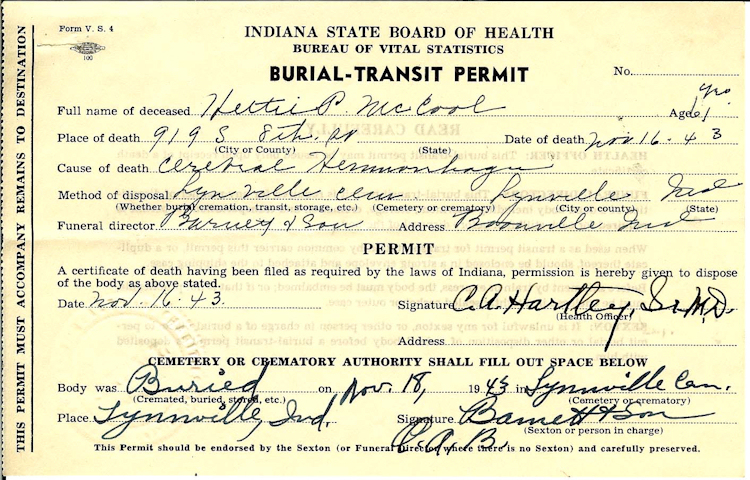 Form V. S. 4
100
INDIANA STATE BOARD OF HEALTH
BUREAU OF VITAL STATISTICS
BURIAL-TRANSIT PERMIT
No.
Full name of deceased Hettie P. McCool Age 61 yrs
Place of death 919 S 8th St Date of death Nov 16-43
(City or County) (State)
Cause of death Cerebral Hemmorhage
Method of disposal Lynville Cem. Lynville Ind
(Whether burial, cremation, transit, storage, etc.) (Cemetery or crematory) (City or county) (State)
Funeral director Barnett & Son Address Boonville Ind
PERMIT
A certificate of death having been filed as required by the laws of Indiana, permission is hereby given to dispose
of the body as above stated.
Date Nov. 16-43. Signature C. A. Hartley, Sr. M.D.
(Health Officer)
Address
CEMETERY OR CREMATORY AUTHORITY SHALL FILL OUT SPACE BELOW
Body was Buried on Nov. 18, 1943 in Lynnville Cem.
(Cremated, buried, stored, etc.) (Cemetery or crematory)
Place Lynnville, Ind. Signature Barnett & Son
(Sexton or person in charge)
C. A. B.
This Permit should be endorsed by the Sexton (or Funeral Director where there is no Sexton) and carefully preserved.
THIS PERMIT MUST ACCOMPANY REMAINS TO DESTINATION